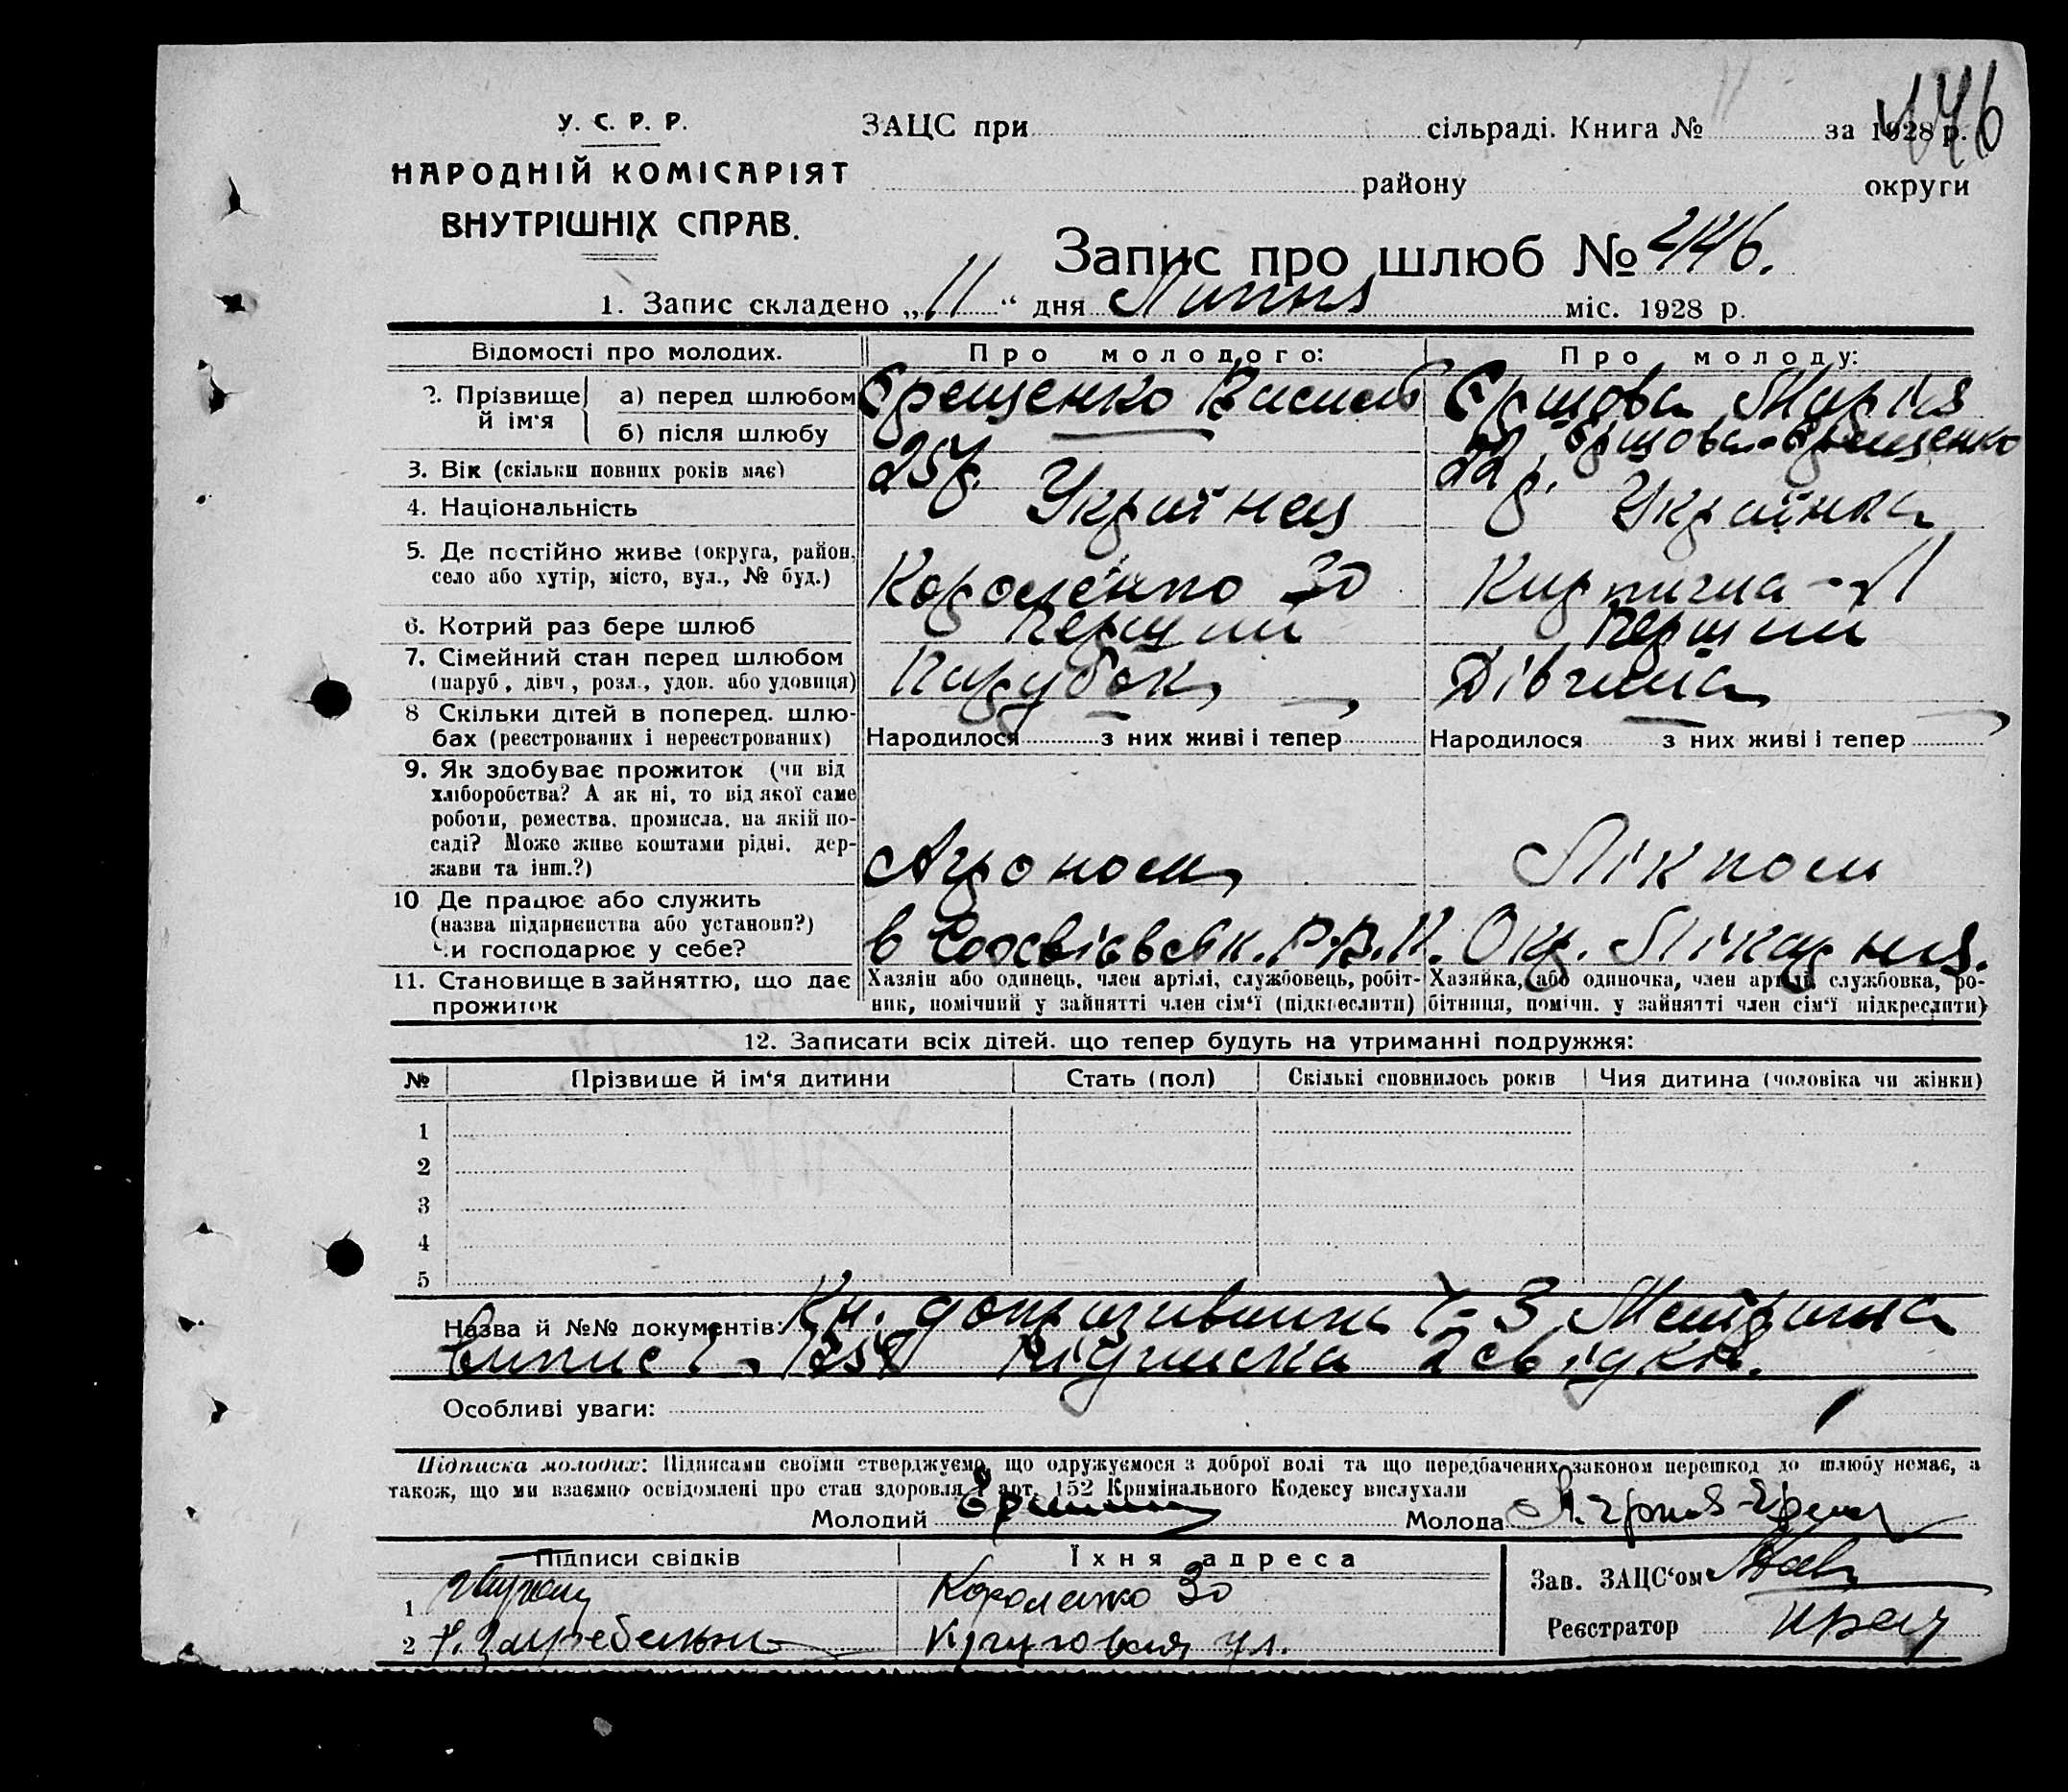 446
У. С. Р. Р.
НАРОДНІЙ КОМІСАРІЯТ
ВНУТРІШНІХ СПРАВ.
ЗАЦС при сільраді. Книга № за 1928 р.
району округи
Запис про шлюб № 446.
1. Запис складено „11“ дня Липня міс. 1928 р.
Відомості про молодих. Про молодого: Про молоду:
2. Прізвище й ім'я а) перед шлюбом Єрещенко Василь Єршова Марія
б) після шлюбу — Єршова-Єрещенко
3. Вік (скільки повних років має) 25 р. 22 р.
4. Національність Українец Українка
5. Де постійно живе (округа, район, село або хутір, місто, вул., № буд.) Короленко 30 Кирпична
6. Котрий раз бере шлюб Перший Перший
7. Сімейний стан перед шлюбом (паруб, дівч, розл., удов. або удовиця) Парубок Дівчина
8 Скільки дітей в поперед. шлюбах (реєстрованих і нереєстрованих) Народилося з них живі і тепер Народилося з них живі і тепер
9. Як здобуває прожиток (чи від
хліборобства? А як ні, то від якої саме
роботи, ремества, промисла, на якій по-
саді? Може живе коштами рідні, дер-
жави та інш.?) Агроном Лікпом
10 Де працює або служить
(назва підприєнства або установи?)
Чи господарює у себе? в Р.В.К. Окр. Лікарня.
11. Становище в зайняттю, що дає прожиток
Хазяін або одинець, член артілі, службовець, робіт-
ник, помічний у зайнятті член сім'ї (підкреслити)
Хазяйка, або одиночка, член артілі службовка, ро-
бітниця, помічн. у зайнятті член сім'ї підкреслити)
12. Записати всіх дітей, що тепер будуть на утриманні подружжя:
№ Прізвише й ім'я дитини Стать (пол) Скількі сповнилось років Чия дитина (чоловіка чи жінки)
1
2
3
4
5
Назва й №№ документів: Кн. допризивника Ч- 3 Метрична
випис Підписка 2 свідків.
Особливі уваги:
Підписка молодих: Підписами своїми стверджуємо, що одружуємося з доброї волі та що передбачених законом перешкод до шлюбу немає, а
також, що ми взаємно освідомлені про стан здоровля й арт. 152 Кримінального Кодексу вислухали
Молодий Молода
Підписи свідків Їхня адреса Зав. ЗАЦС'ом
1 Короленко 30
2 ул.
Реєстратор